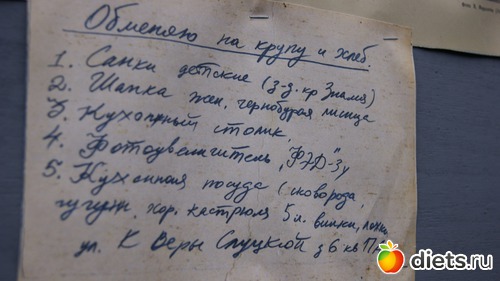 Обменяю на крупу и хлеб.
1. Санки детские (з-д. кр Знамя)
2. Шапка жен. чернобурая лисица
3. Кухонный столик
4. Фотоувеличитель "ФЭД"-3у
5. Кухонная посуда (сковорода,
чугунн, хор. кастрюля 5л. вилки, ложки
ул. К Веры Слуцкой д 6 кв 17
diets.ru